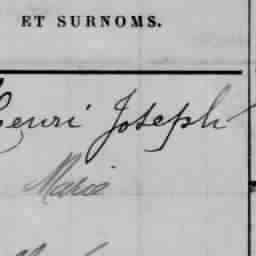 ET SURNOMS.
Henri Joseph
Marie